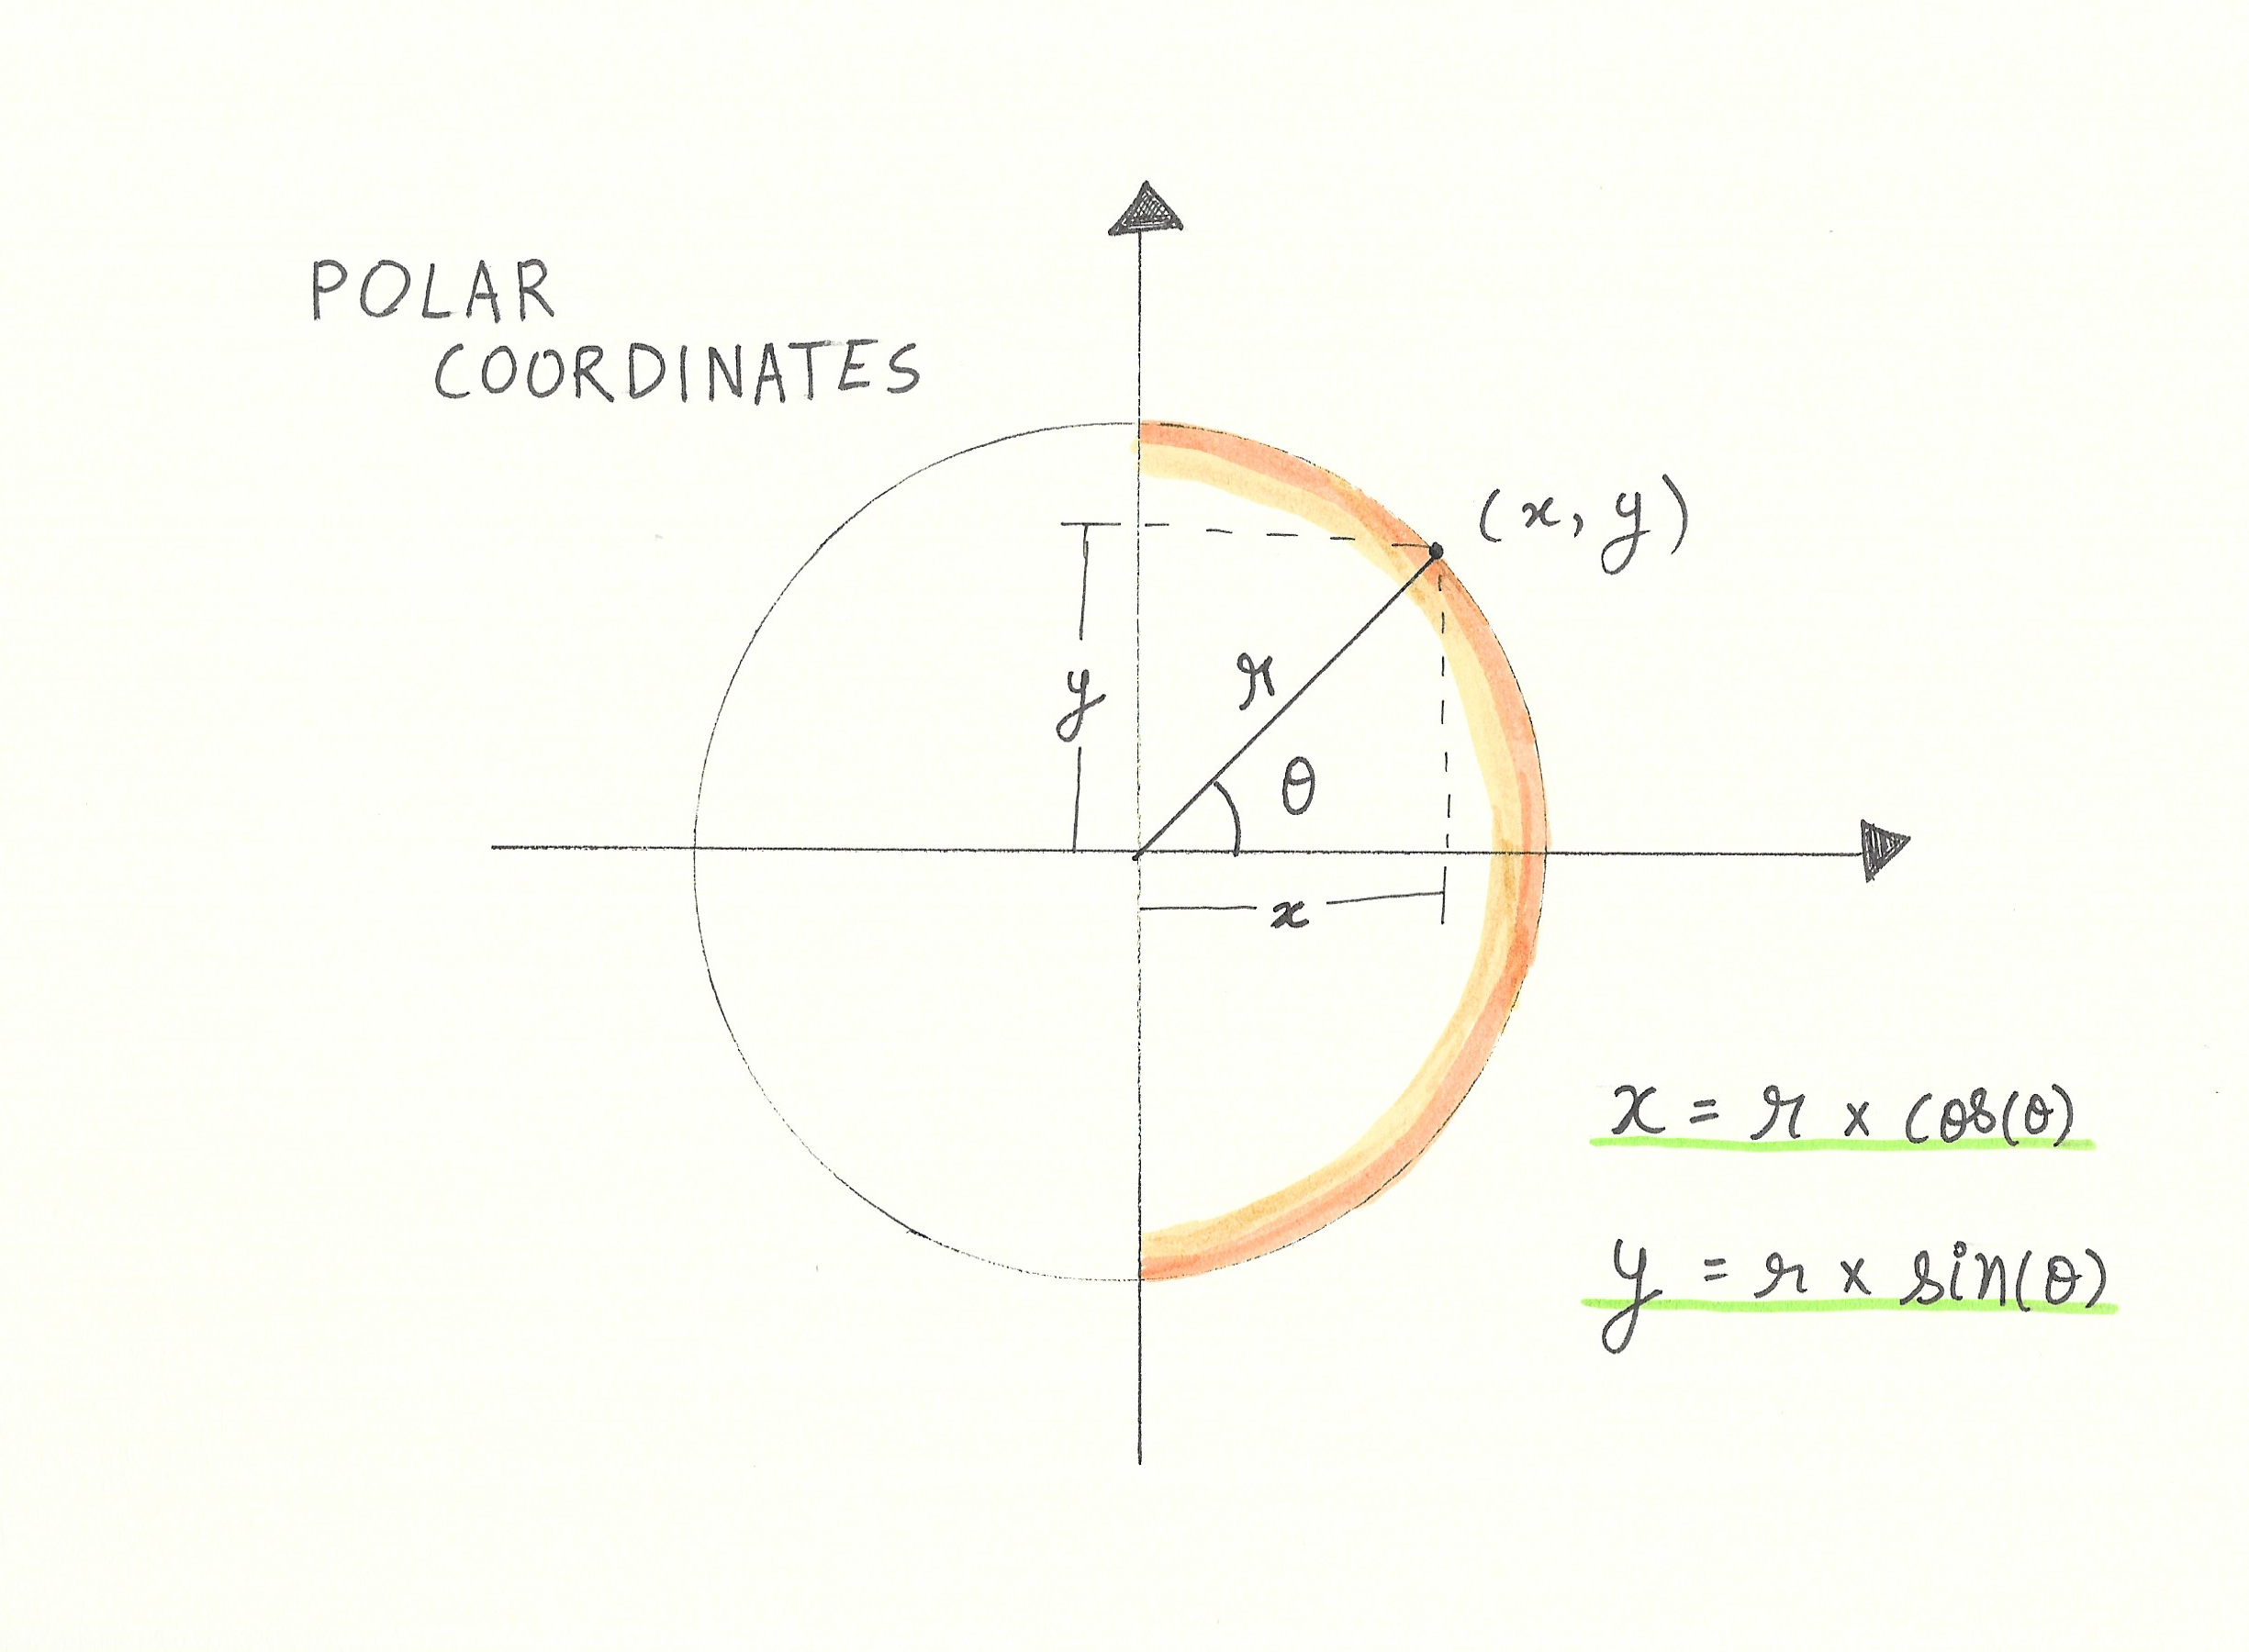 POLAR
COORDINATES
(x, y)
y
r
θ
x
x = r × cos(θ)
y = r × sin(θ)